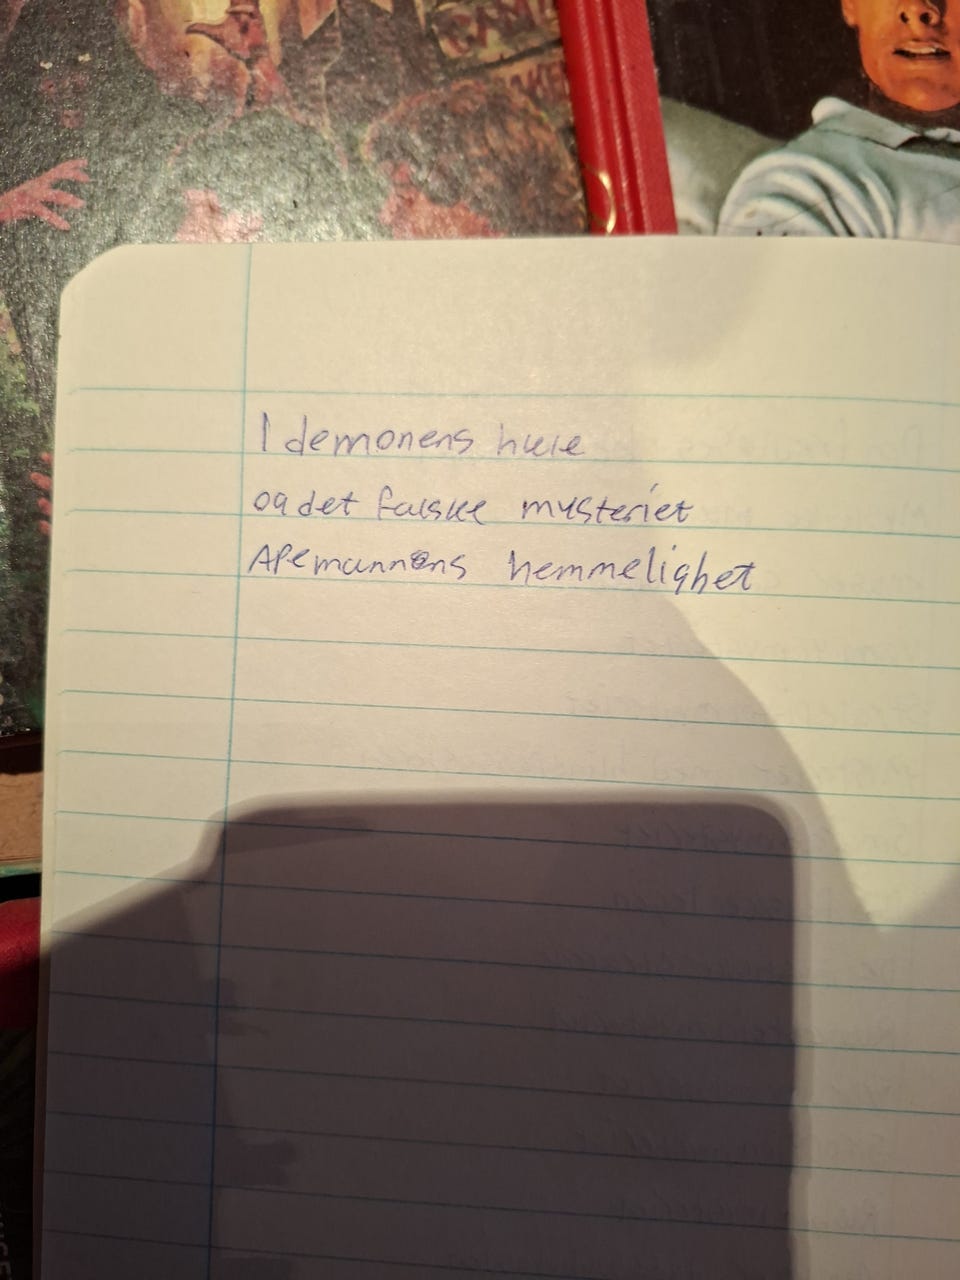 I demonens hule
og det falske mysteriet
Apemannens hemmelighet